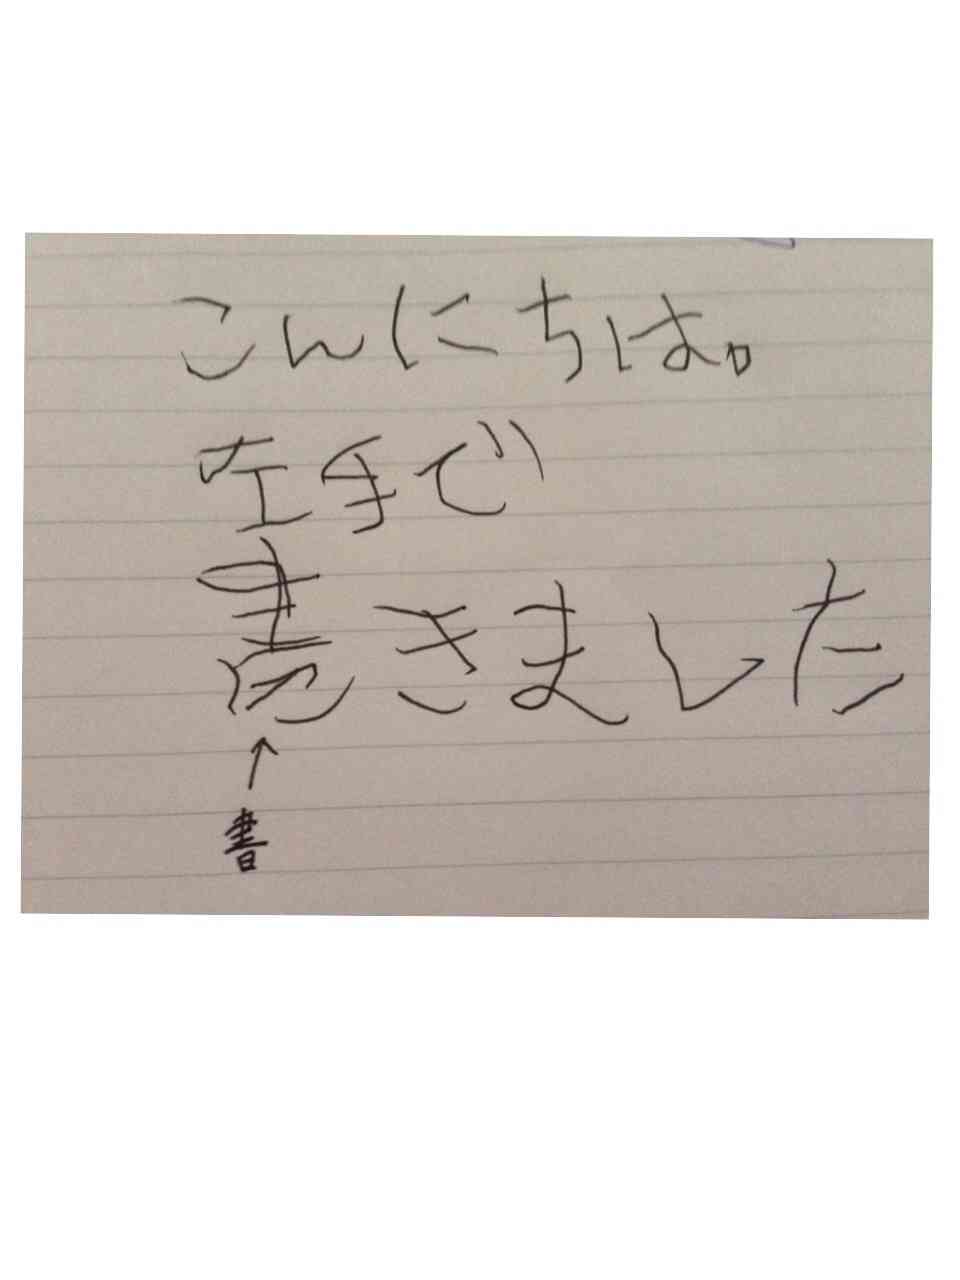 こんにちは。
左手で
書きました
↑
書